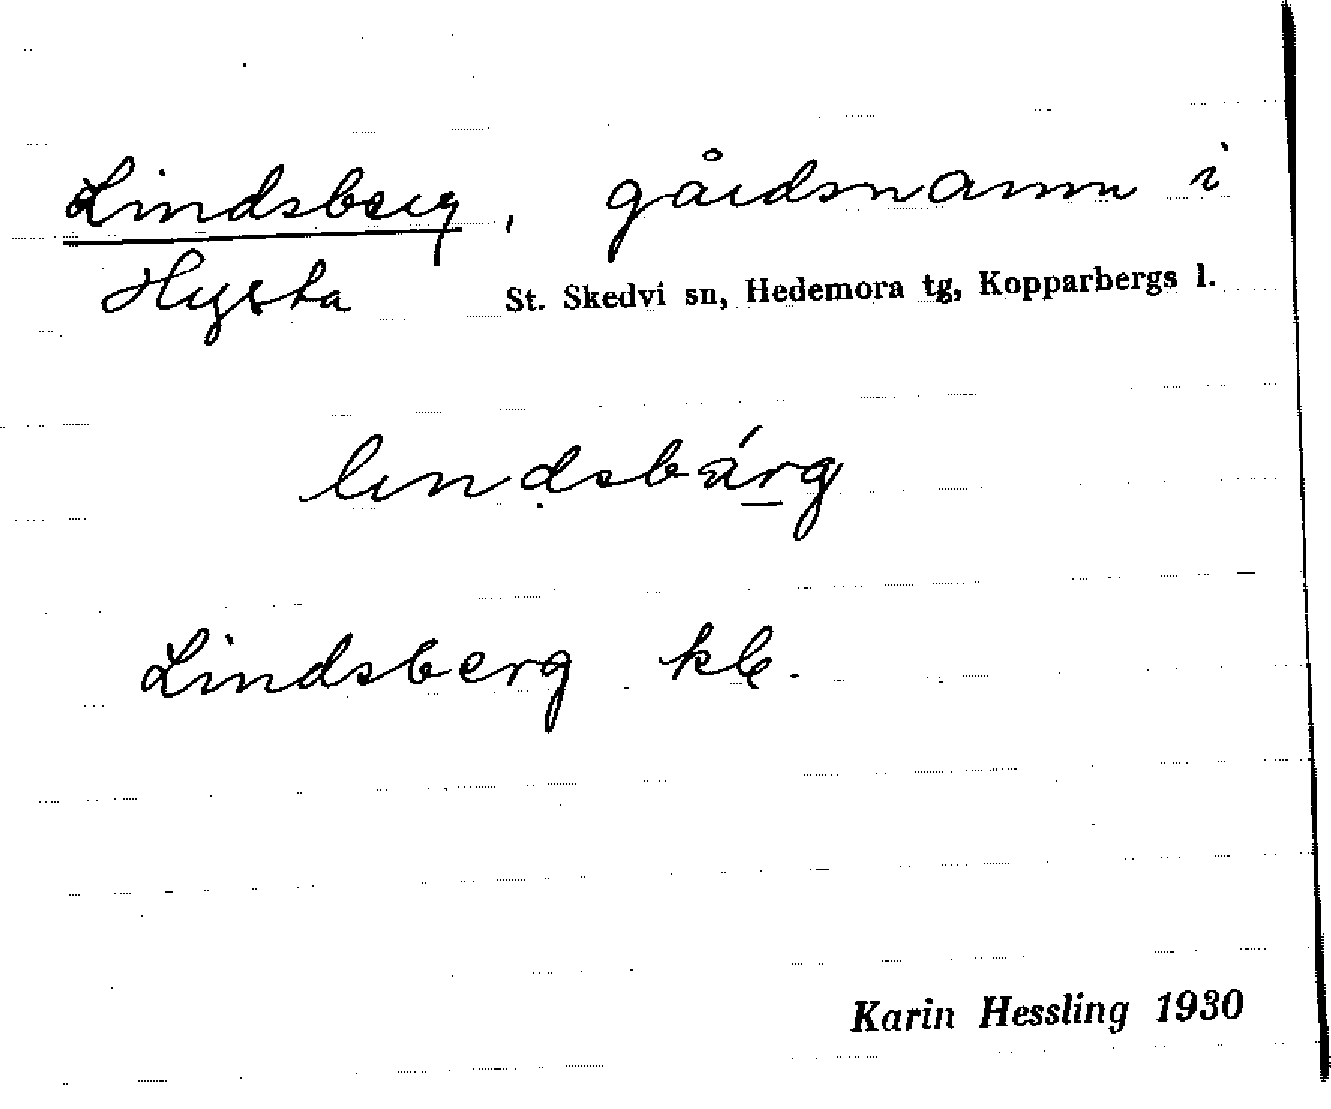 Lindsberg, gårdsnamn i
Hysta St. Skedvi sn, Hedemora tg, Kopparbergs l.
lındsbä́rg
Lindsberg kb.
Karin Hessling 1930